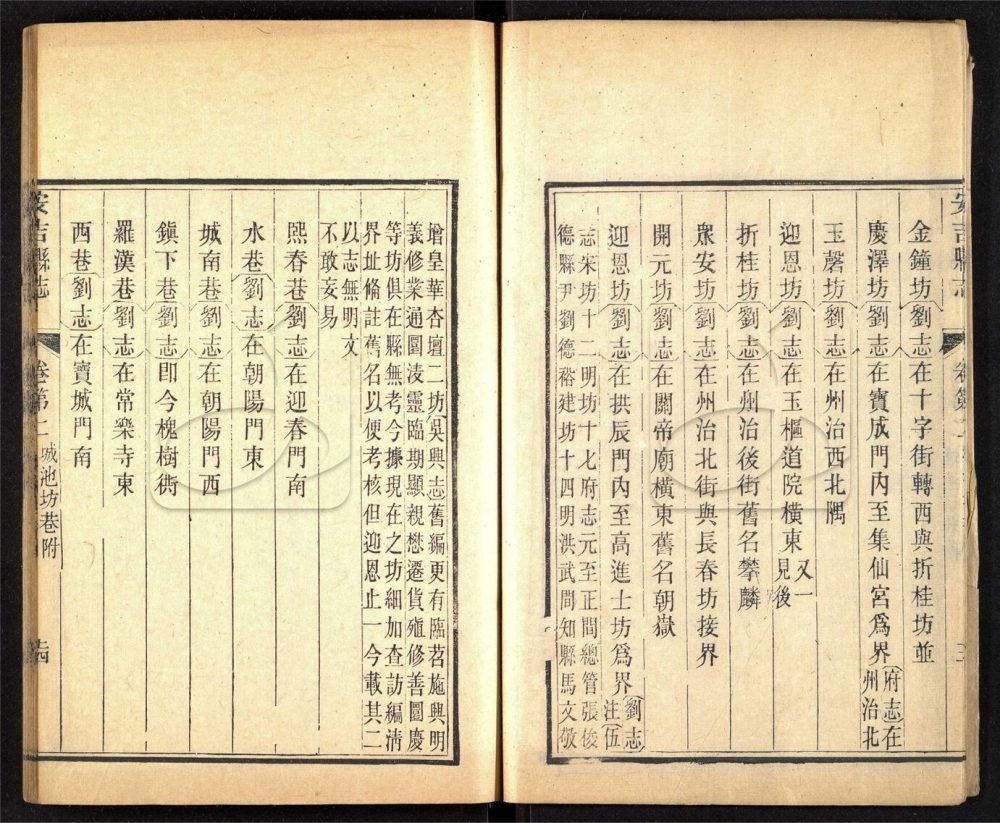 安吉縣志
金鐘坊劉志在十字街轉西與折桂坊並
慶澤坊劉志在寶成門內至集仙宮爲界府志在
州治北
玉磬坊劉志在州治西北隅
迎恩坊劉志在玉樞道院橫東又一
見後
折桂坊劉志在州治後街舊名攀麟
衆安坊劉志在州治北街與長春坊接界
開元坊劉志在關帝廟橫東舊名朝嶽
迎恩坊劉志在拱辰門內至高進士坊爲界劉志
注伍
志宋坊十二明坊十七府志元至正間總管張俊
德縣尹劉德裕建坊十四明洪武間知縣馬文敬
增皇華杏壇二坊吳興志舊編更有臨苕施輿明
義修業通闤淩靈臨期顯親懋遷貨殖修善闤慶
等坊俱在縣無考今據現在之坊細加查訪編淸
界址備註舊名以便考核但迎恩止一今載其二
以志無明文
不敢妄易
熙春巷劉志在迎春門南
水巷劉志在朝陽門東
城南巷劉志在朝陽門西
鎭下巷劉志卽今槐樹衖
羅漢巷劉志在常樂寺東
西巷劉志在寶城門南
安吉縣志
卷第二
城池坊巷附